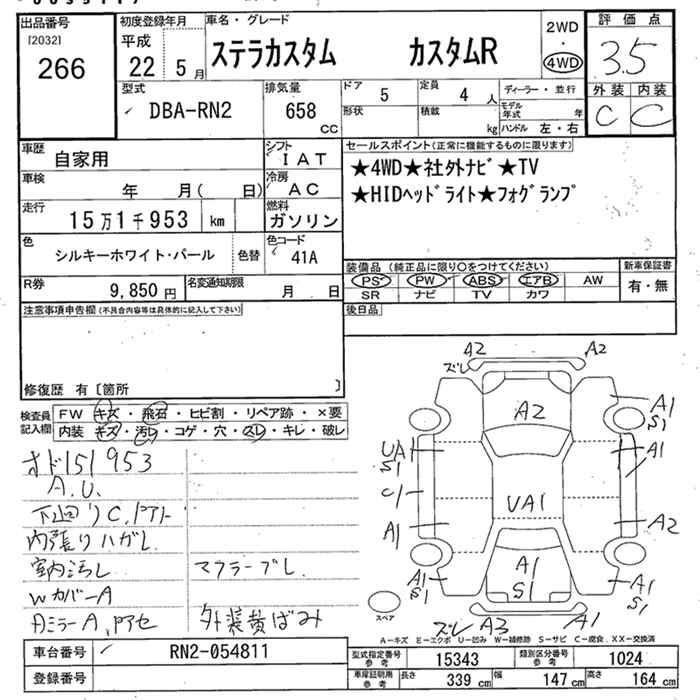 出品番号
[2032]
266
初度登録年月
平成
22 5月
車名・グレード
ステラカスタム カスタムR
2WD
・
4WD
評価点
3.5
外装 内装
C C
型式
DBA-RN2
排気量
658
cc
ドア
5
定員
4 人
形状
積載
kg
ディーラー・並行
モデル年式 年
ハンドル 左・右
車歴
自家用
シフト
IAT
車検
年 月( 日)
冷房
AC
走行
15万1千953 km
燃料
ガソリン
色
シルキーホワイト・パール
色替
色コード
41A
R券
9,850円
名変通知期限
月 日
セールスポイント(正常に機能するものに限ります)
★4WD★社外ナビ★TV
★HIDヘッドライト★フォグランプ
装備品 (純正品に限り〇をつけてください)
PS PW ABS エアB AW
SR ナビ TV カワ
新車保証書
有・無
後日品
注意事項申告欄(不具合内容等は具体的に記入して下さい)
修復歴 有[箇所 ]
検査員記入欄
FW キズ・飛石・ヒビ割・リペア跡・×要
内装 キズ・汚レ・コゲ・穴・スレ・キレ・破レ
オド151953
A.U.
下回りC、
内張りハガレ
室内汚レ
マフラーブレ
WカバーA
AミラーA、
外装黄ばみ
ズレ A2 A2
A2
A1
S1
UA1
S1
A1
C1
UA1
A1
A2
A1
S1
A1
S1
A1
S1
スペア
ズレ A3 A1
A－キズ E－エクボ U－凹み W－補修跡 S－サビ C－腐食 XX－交換済
車台番号
RN2-054811
登録番号
型式指定番号 参考
15343
類別区分番号 参考
1024
車庫証明用 参考
長さ 339 cm
幅 147 cm
高さ 164 cm